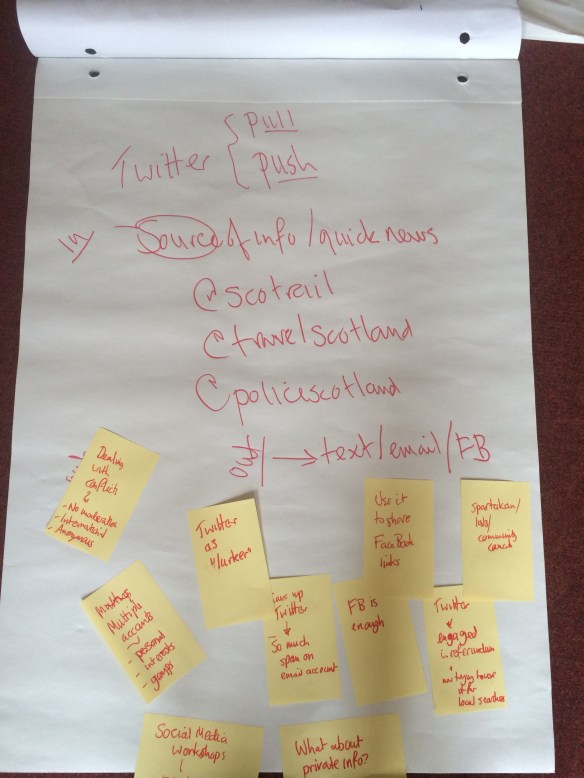 Twitter { pull
push
in/ Source of info / quick news
@scotrail
@travelscotland
@policescotland
out/ → text/email/FB
Dealing
with
conflict
- No moderation
- Anonymous
Twitter
as
"lurker"
Use it
to share
FaceBook
links
Spartakan/
labs/
community
council
Multiple
accounts
- personal
- interests
- groups
up
Twitter
↓
So much
spam on
email account
FB is
enough
Twitter
↓
engaged
in referendum
+
now trying to use
it for
local searches
Social Media
workshops
What about
private info?